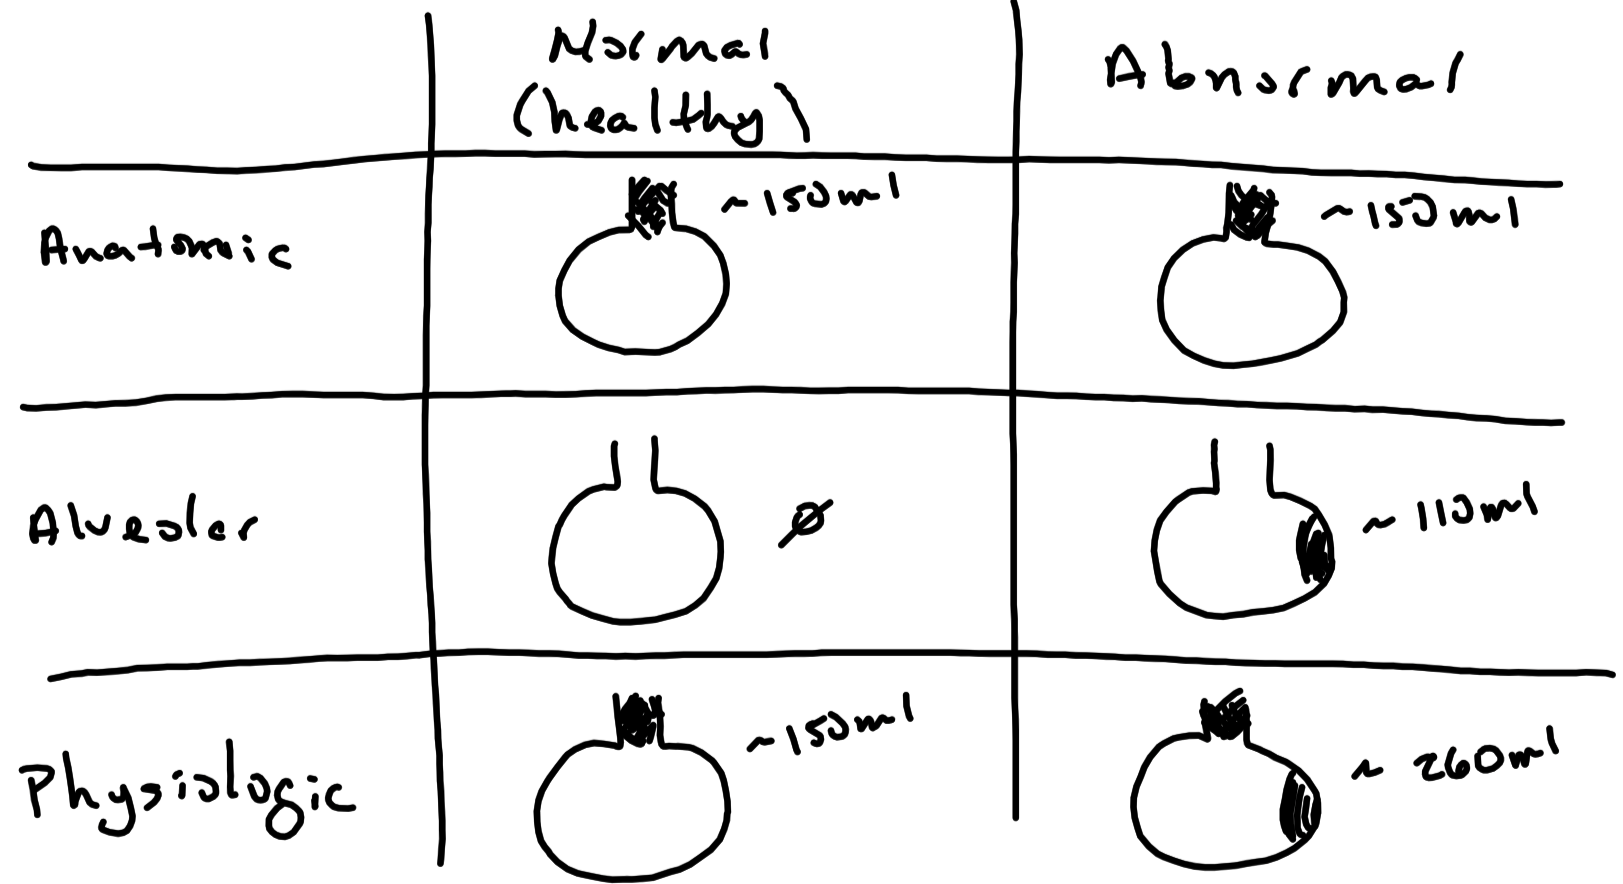 Normal
(healthy)
Abnormal
Anatomic
~150ml
~150ml
Alveolar
Ø
~110ml
Physiologic
~150ml
~260ml